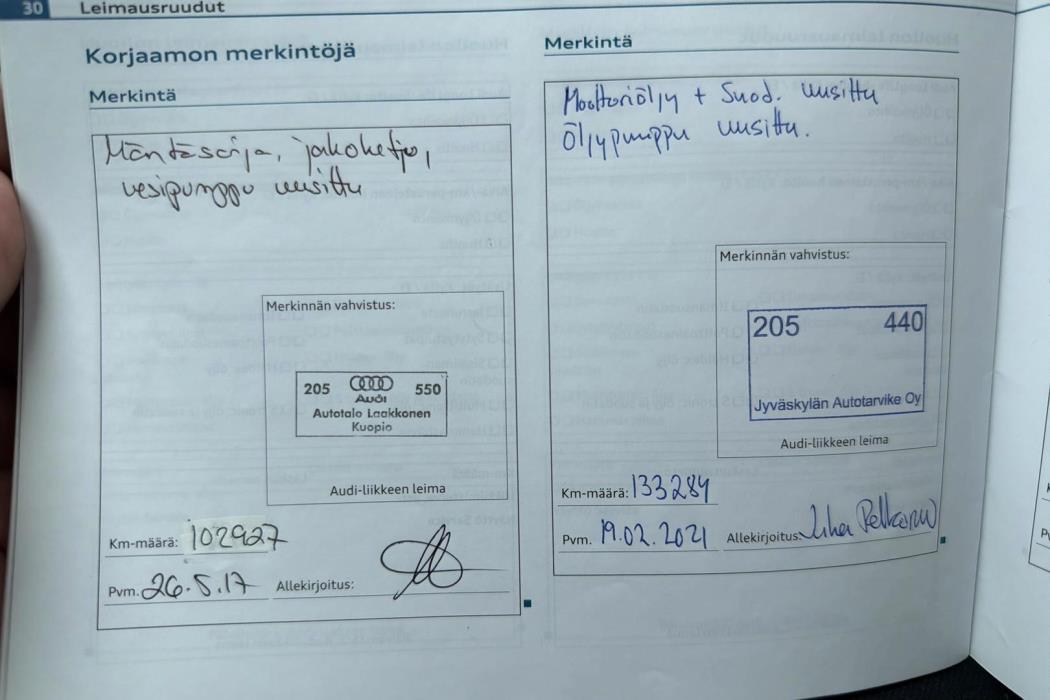 30 Leimausruudut
Korjaamon merkintöjä
Merkintä
Mäntäsarja, jakoketju,
vesipumppu uusittu
Merkinnän vahvistus:
205 Audi 550
Autotalo Laakkonen
Kuopio
Audi-liikkeen leima
Km-määrä: 102927
Pvm. 26.5.17 Allekirjoitus:
Merkintä
Moottoriöljy + Suod. uusittu
Öljypumppu uusittu.
Merkinnän vahvistus:
205 440
Jyväskylän Autotarvike Oy
Audi-liikkeen leima
Km-määrä: 133284
Pvm. 19.02.2021 Allekirjoitus: Juha